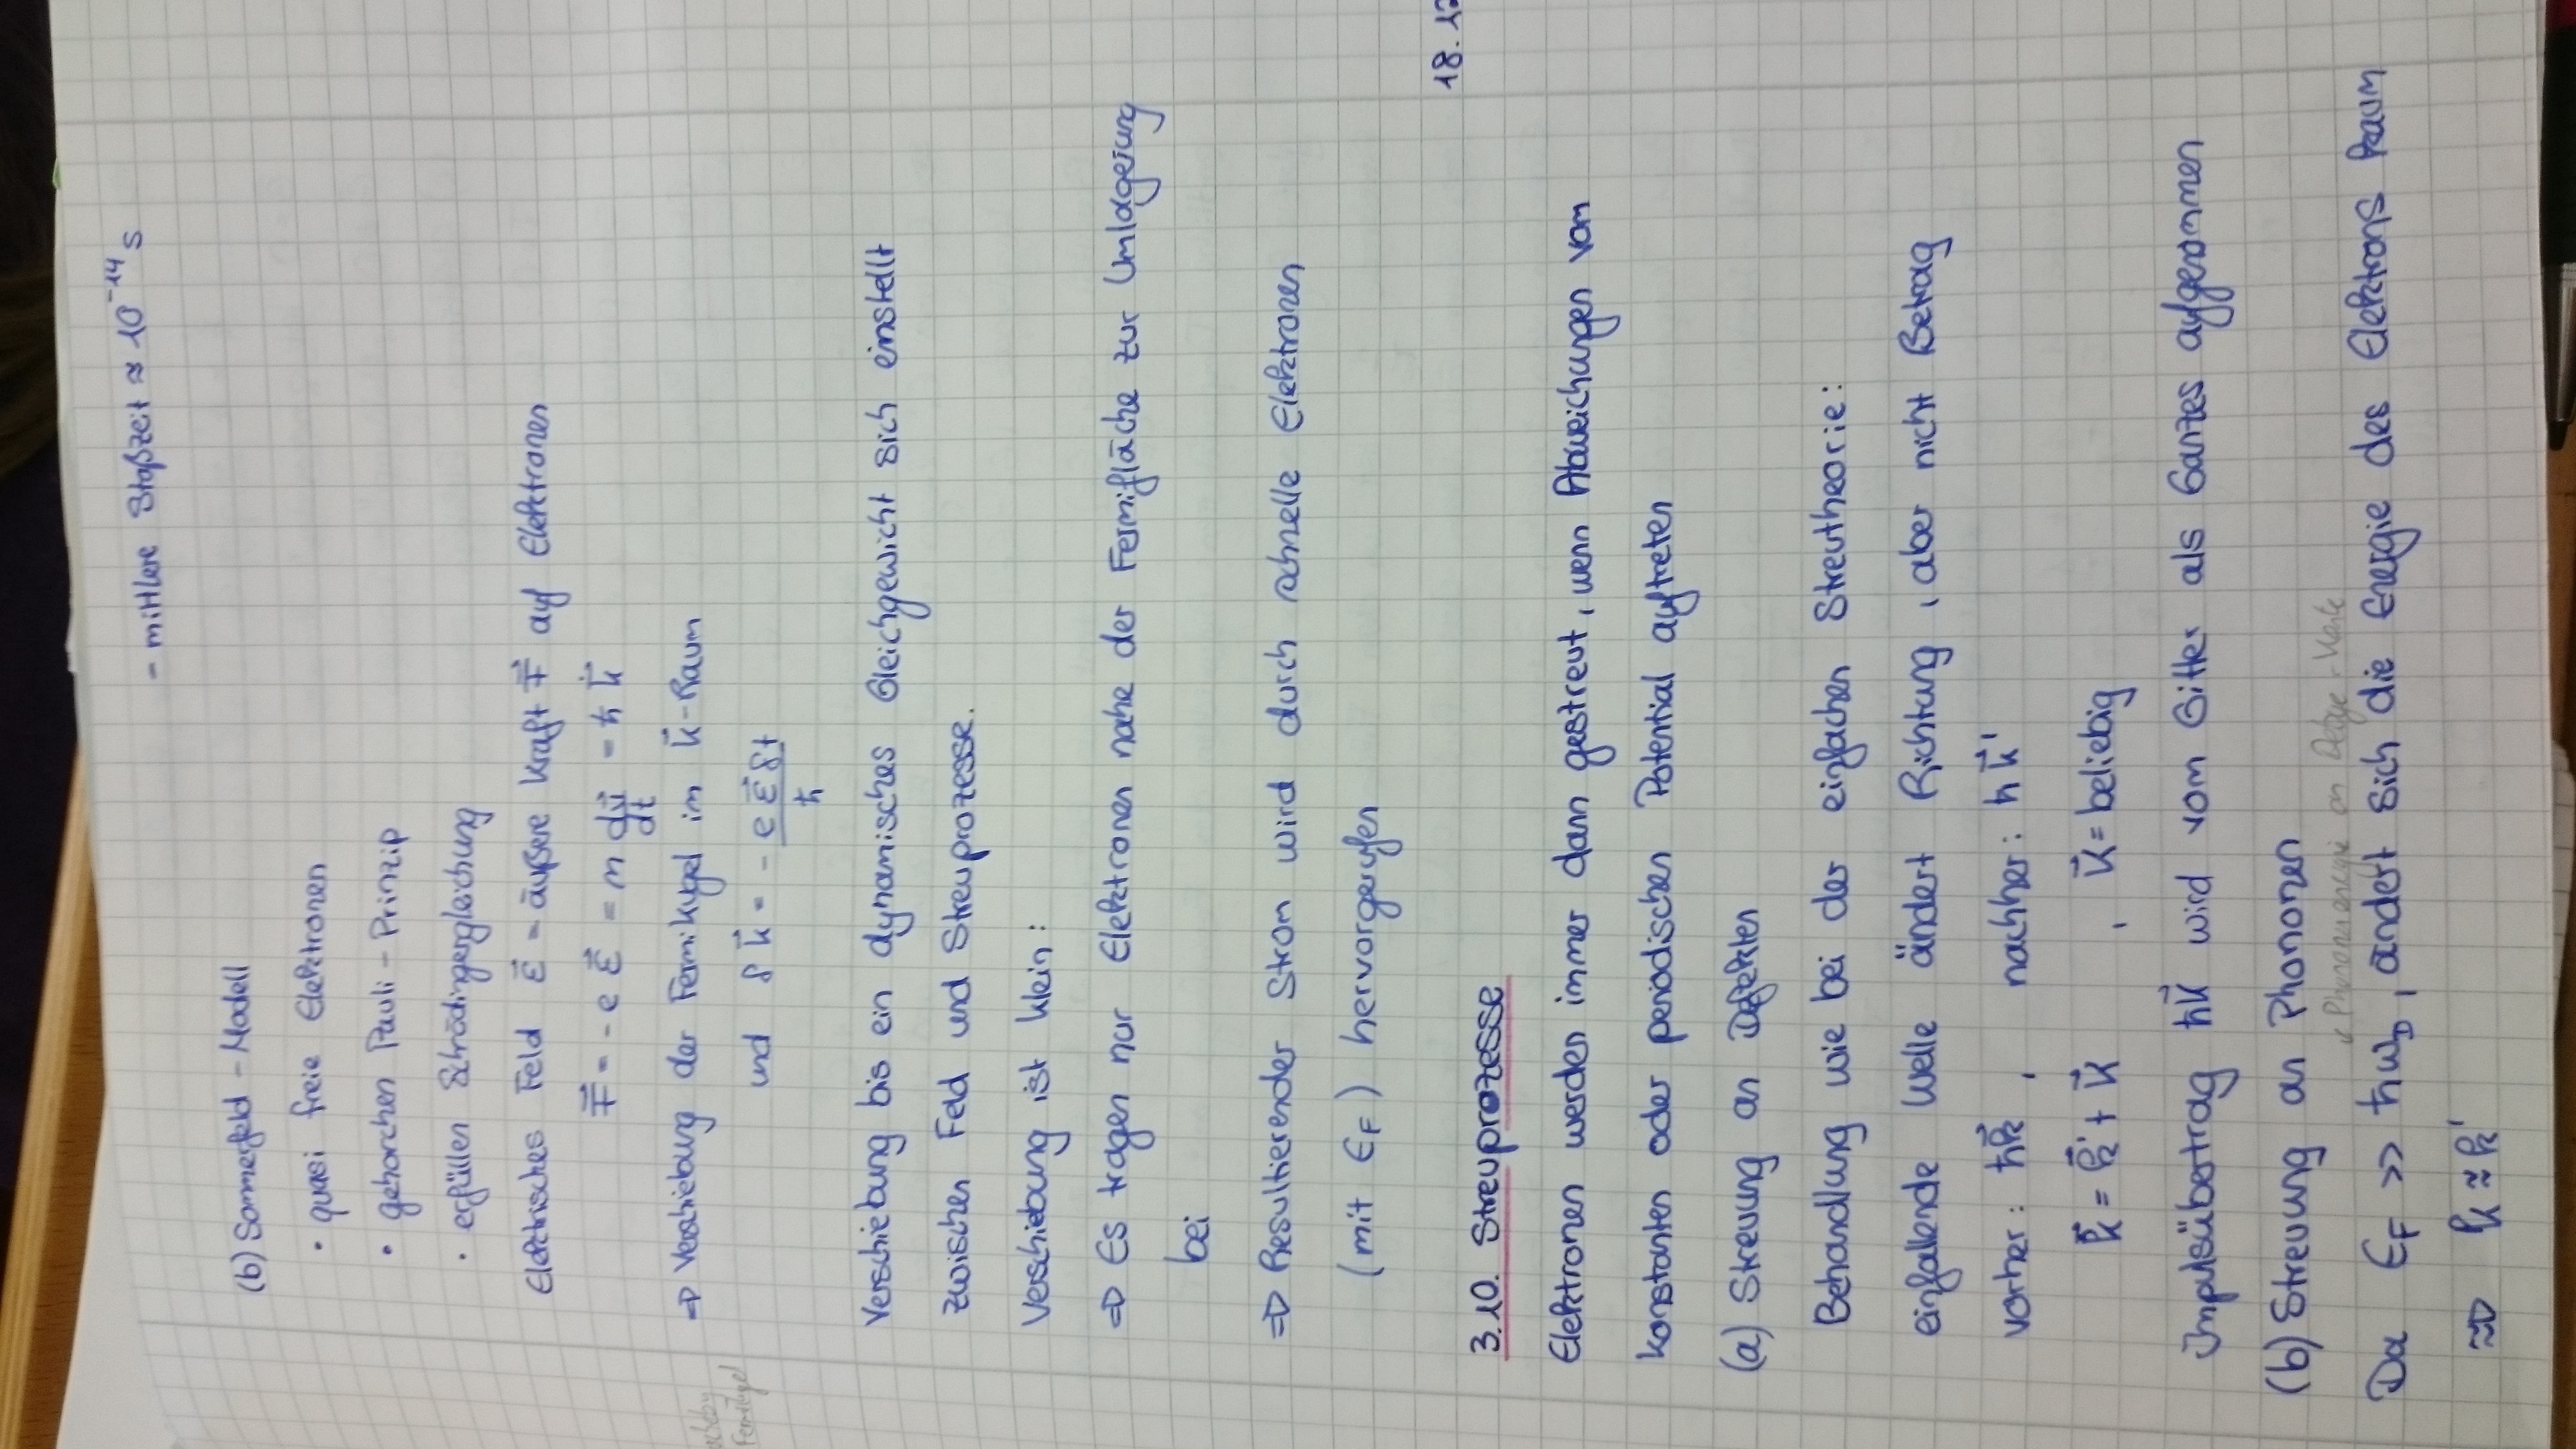 - mittlere Stoßzeit ≈ 10⁻¹⁴ s
(b) Sommerfeld - Modell
• quasi freie Elektronen
• gehorchen Pauli - Prinzip
• erfüllen Schrödingergleichung
Elektrisches Feld ℰ⃗ = äußere Kraft F⃗ auf Elektronen
F⃗ = - e ℰ⃗ = m du⃗/dt = ħ k⃗̇
⇒ Verschiebung der Fermikugel im k⃗-Raum
Fermikugel
und δk⃗ = - eℰ⃗δt/ħ
Verschiebung bis ein dynamisches Gleichgewicht sich einstellt
zwischen Feld und Streuprozesse.
Verschiebung ist klein:
⇒ Es tragen nur Elektronen nahe der Fermifläche zur Umlagerung
bei
⇒ Resultierender Strom wird durch schnelle Elektronen
(mit ϵ_F) hervorgerufen
18.12
3.10. Streuprozesse
Elektronen werden immer dann gestreut, wenn Abweichungen vom
konstanten oder periodischen Potential auftreten
(a) Streuung an Defekten
Behandlung wie bei der einfachen Streutheorie:
einfallende Welle ändert Richtung, aber nicht Betrag
vorher: ħk⃗, nachher: ħk⃗'
k⃗ = k⃗' + K⃗, K⃗ = beliebig
Impulsübertrag ħK⃗ wird vom Gitter als Ganzes aufgenommen
(b) Streuung an Phononen
↙ Phononenenergie an Debye-Kante
Da ϵ_F >> ħω_D, ändert sich die Energie des Elektrons kaum
⇒ k ≈ k'